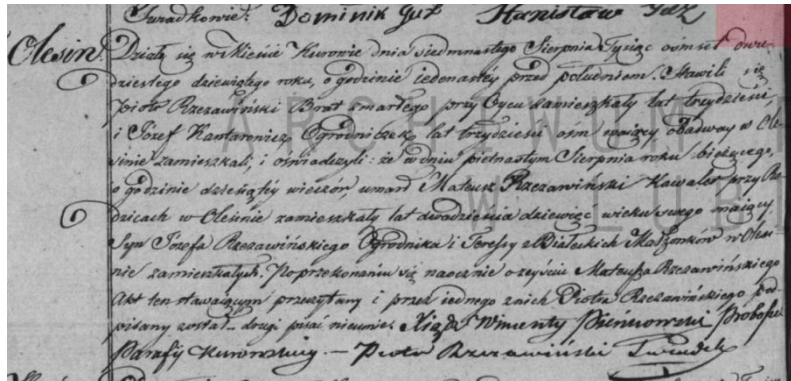 Świadkowie: Dominik Guz Stanisław Guz
Olesin. Działo się w Mieście Kurowie dnia siedmnastego Sierpnia Tysiąc ośmset dwu-
dziestego dziewiątego roku, o godzinie iedenastey przed południem. Stawili się
Piotr Rzezawiński Brat zmarłego przy Oycu zamieszkały lat trzydzieści,
i Józef Kantarewicz Ogrodniczek, lat trzydzieści ośm maiący obadway w Ole-
sinie zamieszkali, i oświadczyli: że w dniu pietnastym Sierpnia roku bieżącego,
o godzinie dziesiątey wieczór, umarł Mateusz Rzezawiński Kawaler przy Ro-
dzicach w Olesinie zamieszkały lat dwadzieścia dziewięć wieku swego maiący
Syn Józefa Rzezawińskiego Ogrodnika i Teressy z Białeckich Małżonków w Olesi-
nie zamieszkałych. Po przekonaniu się naocznie o zeyściu Mateusza Rzezawińskiego
Akt ten stawaiącym przeczytany i przez iednego z nich Piotra Rzezawińskiego pod-
pisany został – drugi pisać nieumie. Xiądz Wincenty Proboszcz
Parafij Kurowskiey. – Piotr Rzezawiński Świadek
ARCHIWUM
W LUBL